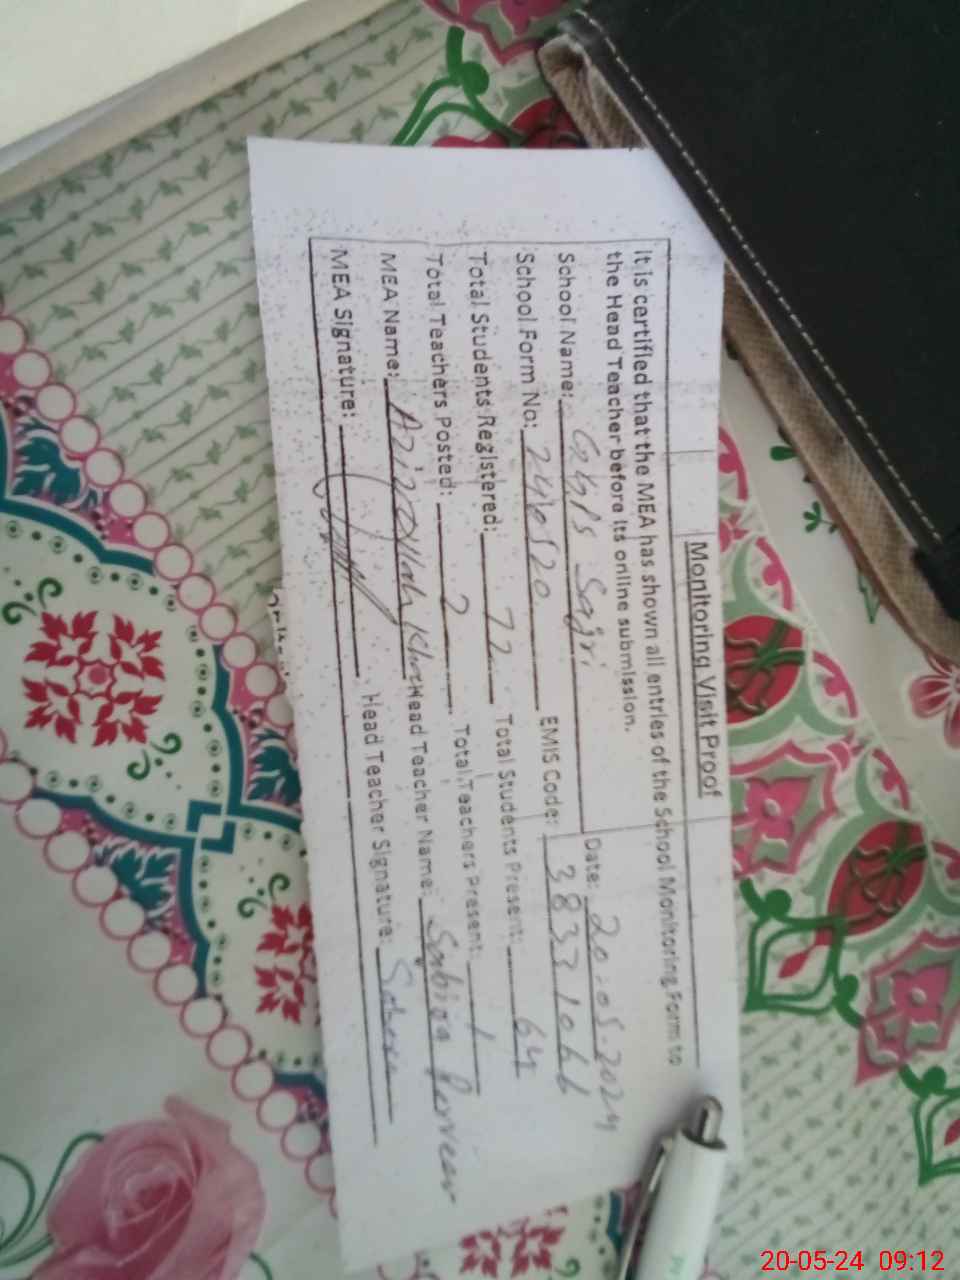 Monitoring Visit Proof
It is certified that the MEA has shown all entries of the School Monitoring Form to
the Head Teacher before its online submission.
School Name: GGPS Sajri. Date: 20-05-2024
School Form No: 246520 EMIS Code: 38331066
Total Students Registered: 72 Total Students Present: 64
Total Teachers Posted: 2 Total Teachers Present: 1
MEA Name: Azizullah Khan Head Teacher Name: Sabiqa Perveen
MEA Signature: Head Teacher Signature:
20-05-24 09:12